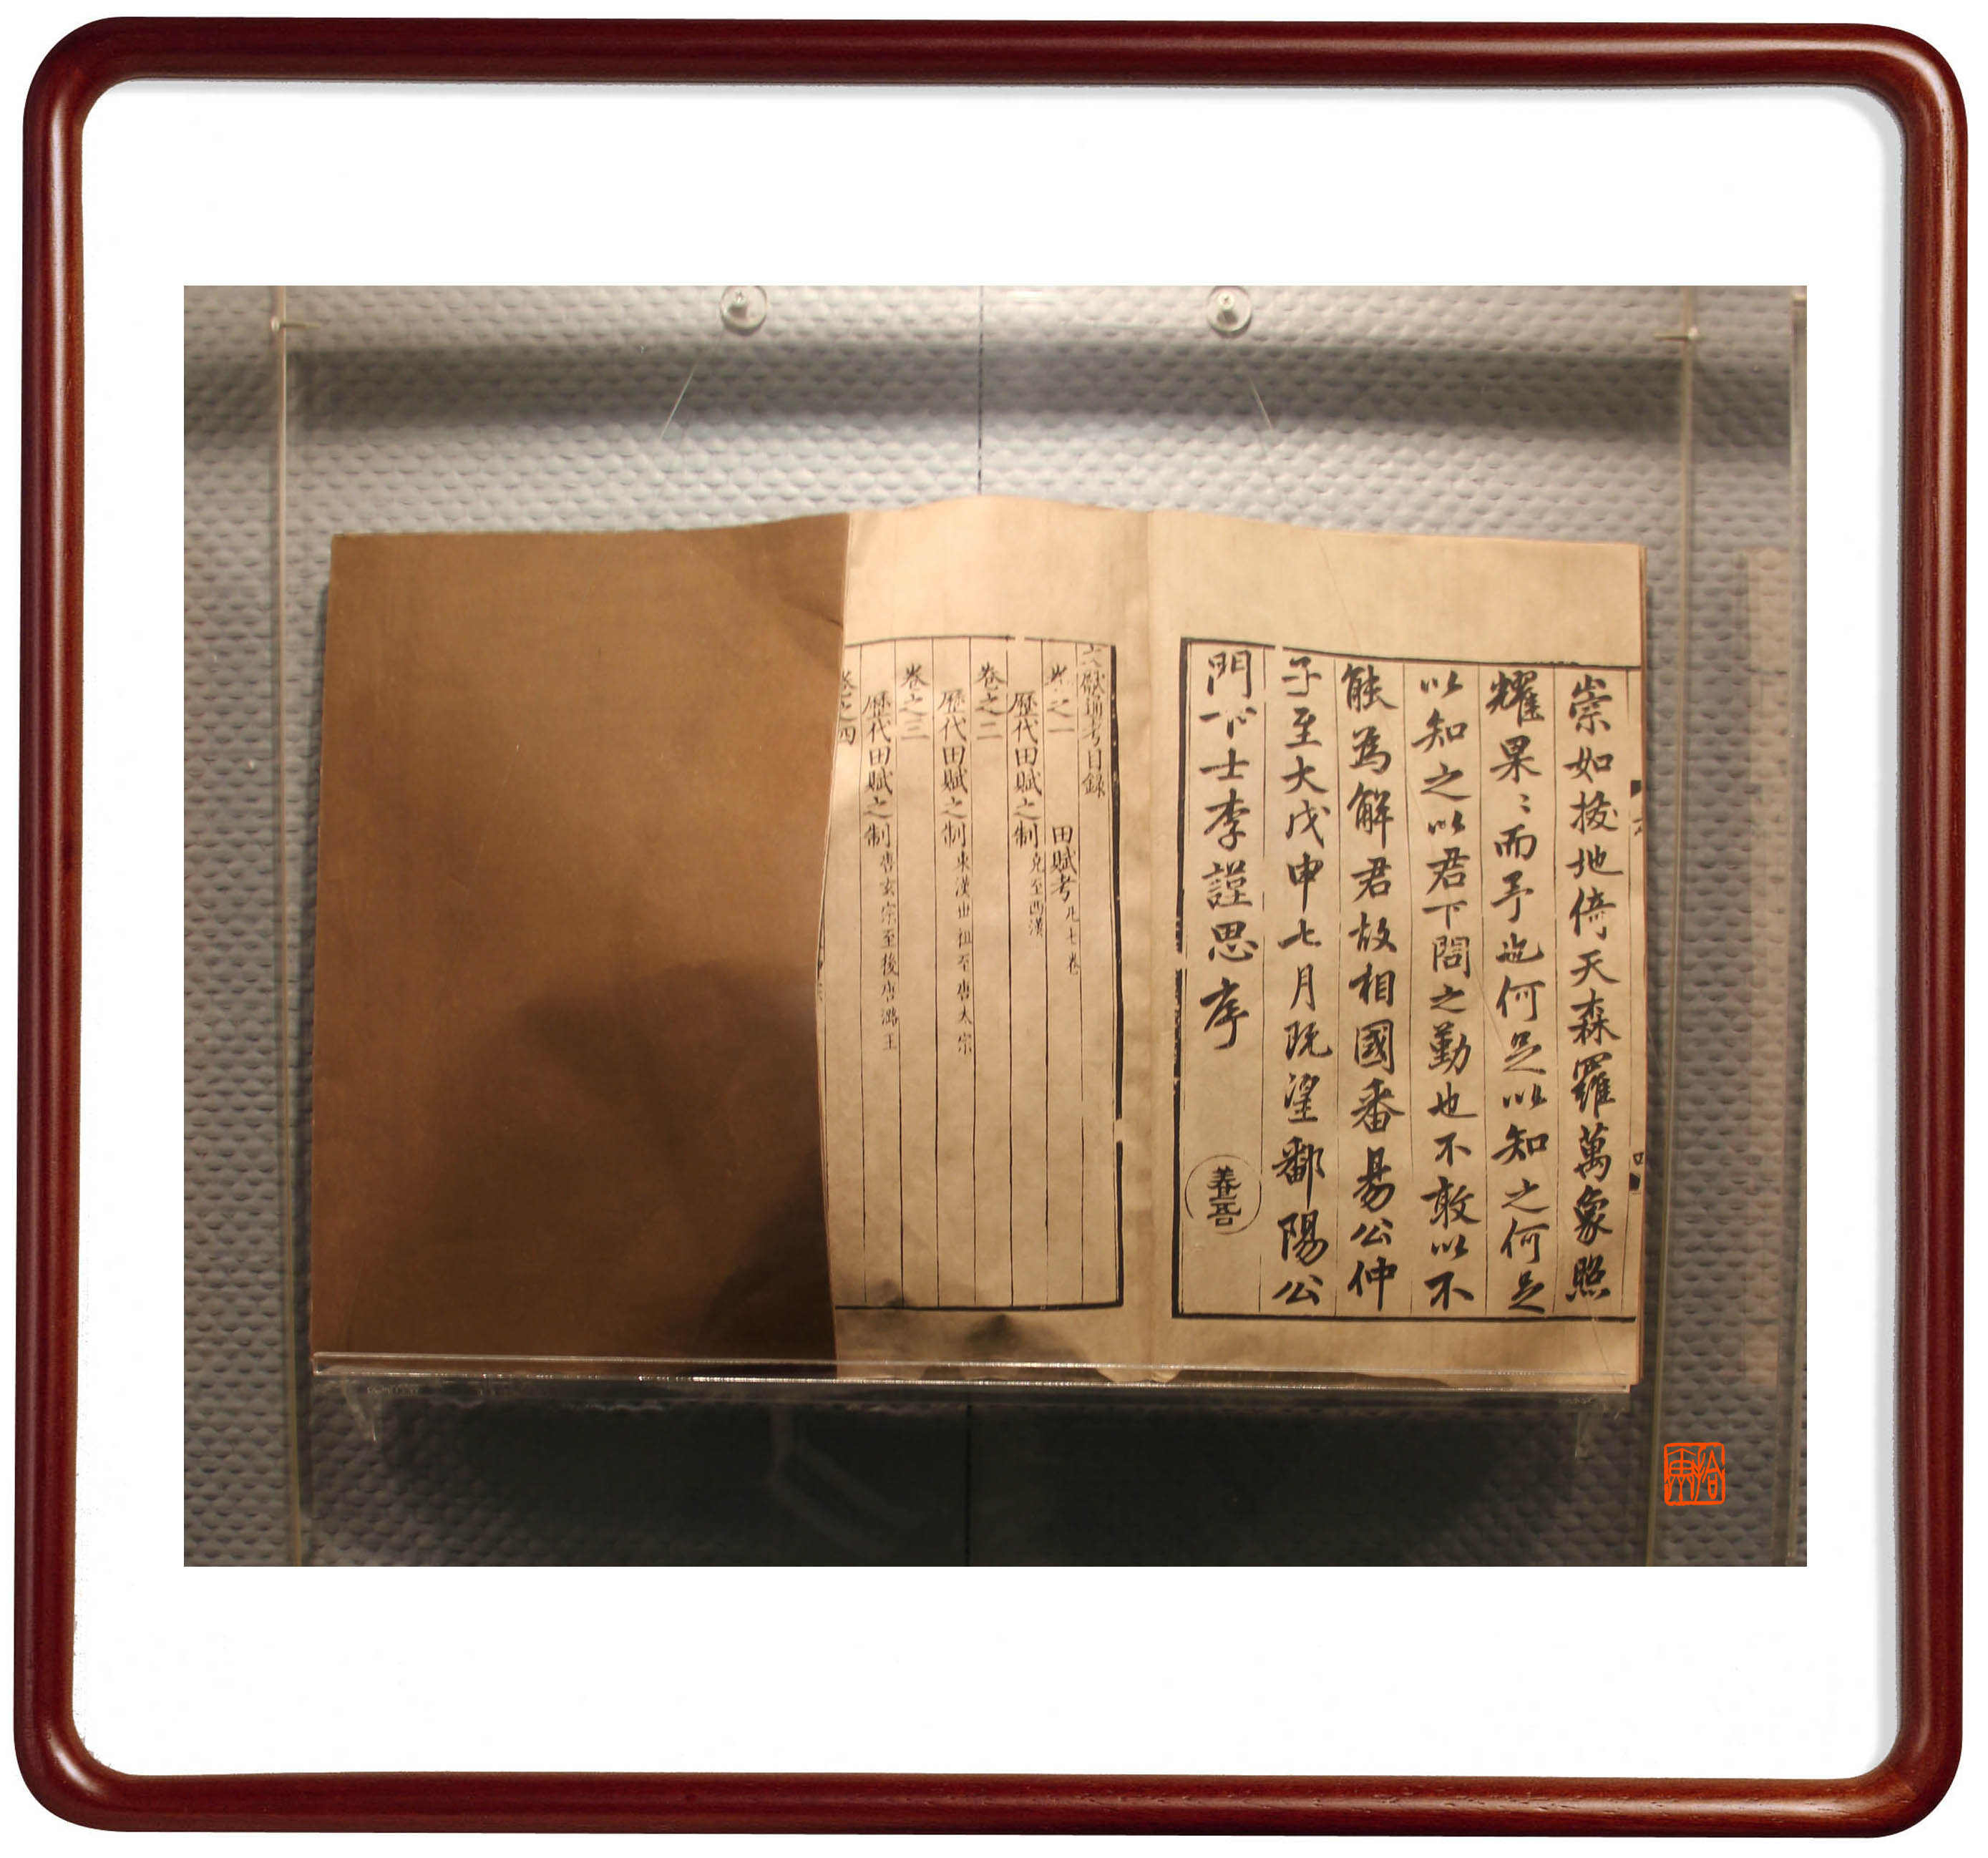 崇如拔地倚天森羅萬象照
耀杲〻而予也何足以知之何足
以知之以君下問之勤也不敢以不
能為解君故相國番昜公仲
子至大戊申七月既望鄱陽公
門下士李謹思序
養吾
文獻通考目録
卷之一　田賦考凡七卷
歷代田賦之制堯至西漢
卷之二
歷代田賦之制東漢世祖至唐太宗
卷之三
歷代田賦之制唐玄宗至後唐潞王
卷之四